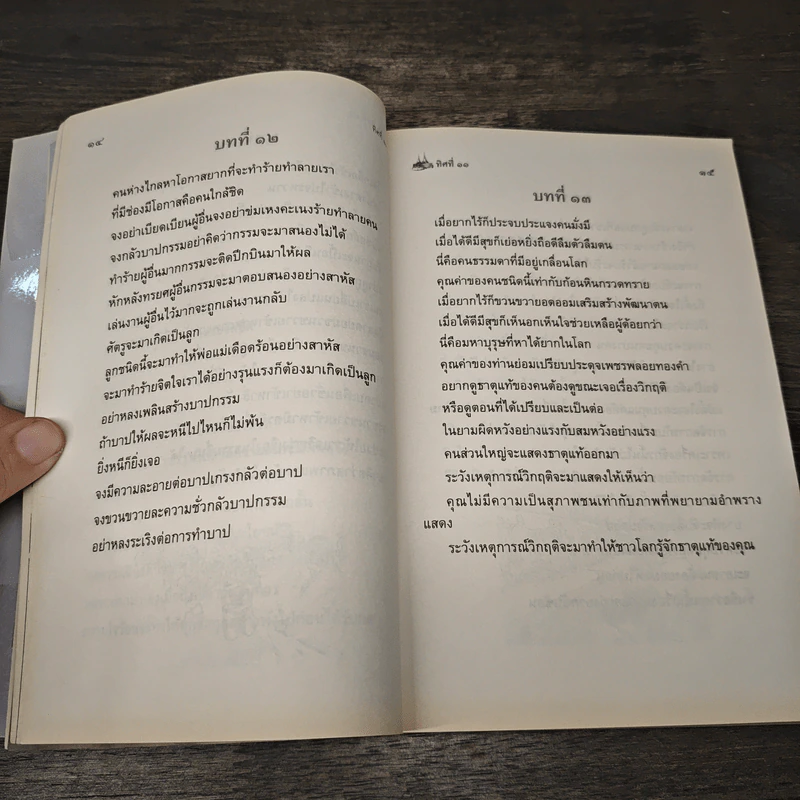 ๑๔
บทที่ ๑๒
คนห่างไกลหาโอกาสยากที่จะทำร้ายทำลายเรา
ที่มีช่องมีโอกาสคือคนใกล้ชิด
จงอย่าเบียดเบียนผู้อื่นจงอย่าข่มเหงคะเนงร้ายทำลายคน
จงกลัวบาปกรรมอย่าคิดว่ากรรมจะมาสนองไม่ได้
ทำร้ายผู้อื่นมากกรรมจะติดปีกบินมาให้ผล
หักหลังทรยศผู้อื่นกรรมจะมาตอบสนองอย่างสาหัส
เล่นงานผู้อื่นไว้มากจะถูกเล่นงานกลับ
ศัตรูจะมาเกิดเป็นลูก
ลูกชนิดนี้จะมาทำให้พ่อแม่เดือดร้อนอย่างสาหัส
จะมาทำร้ายจิตใจเราได้อย่างรุนแรงก็ต้องมาเกิดเป็นลูก
อย่าหลงเพลินสร้างบาปกรรม
ถ้าบาปให้ผลจะหนีไปไหนก็ไม่พ้น
ยิ่งหนีก็ยิ่งเจอ
จงมีความละอายต่อบาปเกรงกลัวต่อบาป
จงขวนขวายละความชั่วกลัวบาปกรรม
อย่าหลงระเริงต่อการทำบาป
ทิศที่ ๑๑
๑๕
บทที่ ๑๓
เมื่อยากไร้ก็ประจบประแจงคนมั่งมี
เมื่อได้ดีมีสุขก็เย่อหยิ่งถือดีลืมตัวลืมตน
นี่คือคนธรรมดาที่มีอยู่เกลื่อนโลก
คุณค่าของคนชนิดนี้เท่ากับก้อนหินกรวดทราย
เมื่อยากไร้ก็ขวนขวายอดออมเสริมสร้างพัฒนาตน
เมื่อได้ดีมีสุขก็เห็นอกเห็นใจช่วยเหลือผู้ด้อยกว่า
นี่คือมหาบุรุษที่หาได้ยากในโลก
คุณค่าของท่านย่อมเปรียบประดุจเพชรพลอยทองคำ
อยากดูธาตุแท้ของคนต้องดูขณะเจอเรื่องวิกฤติ
หรือดูตอนที่ได้เปรียบและเป็นต่อ
ในยามผิดหวังอย่างแรงกับสมหวังอย่างแรง
คนส่วนใหญ่จะแสดงธาตุแท้ออกมา
ระวังเหตุการณ์วิกฤติจะมาแสดงให้เห็นว่า
คุณไม่มีความเป็นสุภาพชนเท่ากับภาพที่พยายามอำพราง
แสดง
ระวังเหตุการณ์วิกฤติจะมาทำให้ชาวโลกรู้จักธาตุแท้ของคุณ